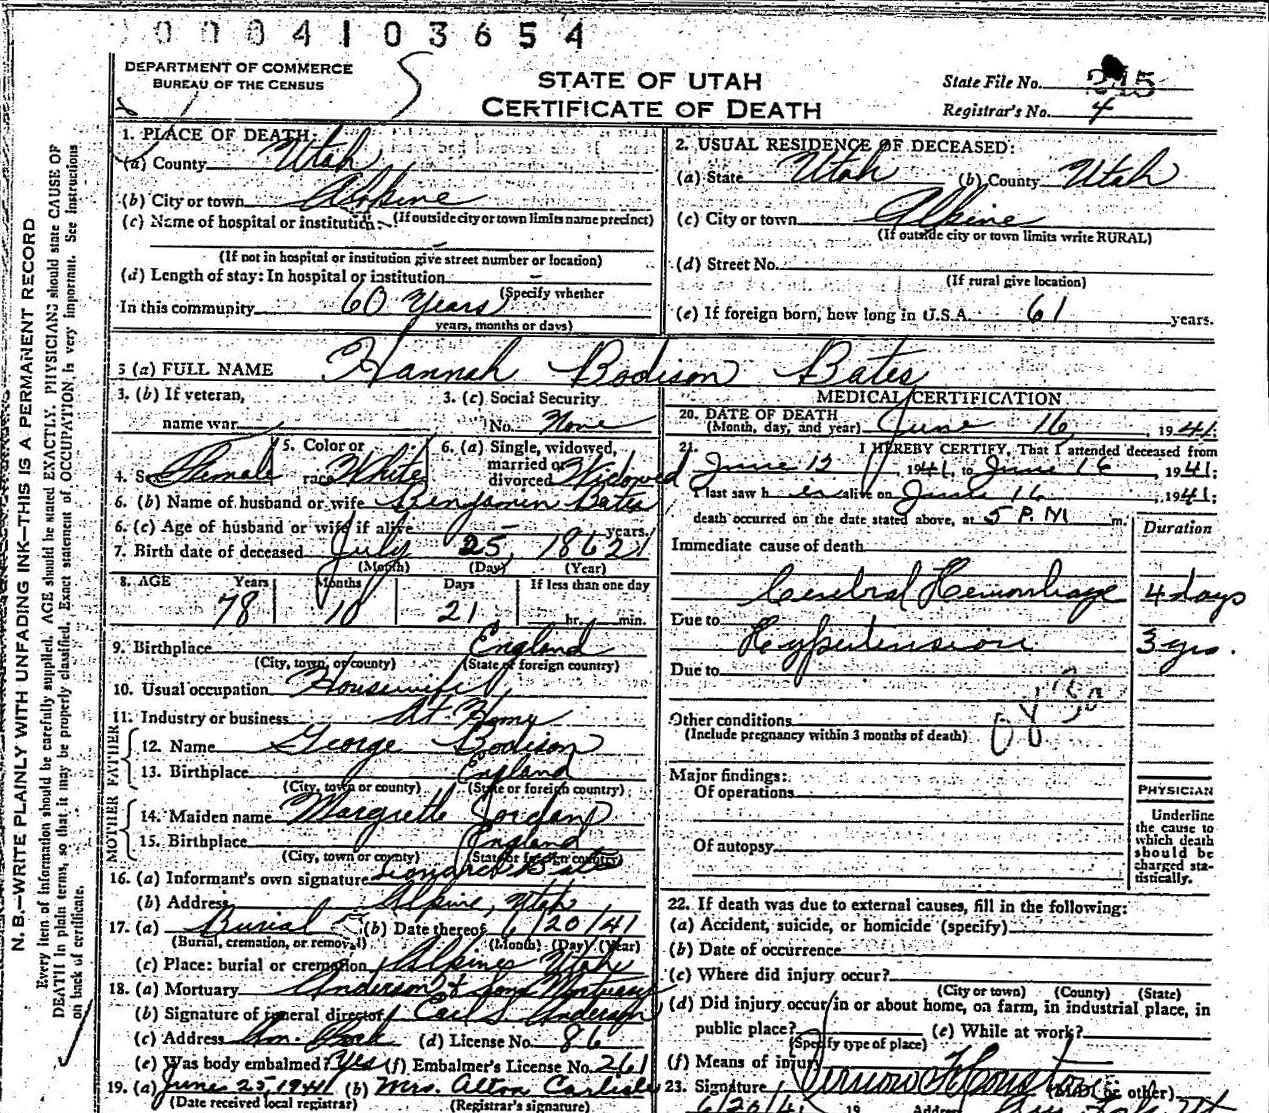 0004103654
DEPARTMENT OF COMMERCE
BUREAU OF THE CENSUS
STATE OF UTAH
CERTIFICATE OF DEATH
State File No. 215
Registrar's No. 4
1. PLACE OF DEATH:
(a) County Utah
(b) City or town Alpine
(If outside city or town limits name precinct)
(c) Name of hospital or institution:
(If not in hospital or institution give street number or location)
(d) Length of stay: In hospital or institution -
(Specify whether
In this community 60 Years
years, months or days)
2. USUAL RESIDENCE OF DECEASED:
(a) State Utah (b) County Utah
(c) City or town Alpine
(If outside city or town limits write RURAL)
(d) Street No.
(If rural give location)
(e) If foreign born, how long in U.S.A. 61 years.
3 (a) FULL NAME Hannah Bodison Bates
3. (b) If veteran,
name war
3. (c) Social Security
No. None
4. Sex Female 5. Color or race White
6. (a) Single, widowed, married or divorced Widowed
6. (b) Name of husband or wife Benjamin Bates
6. (c) Age of husband or wife if alive - years.
7. Birth date of deceased July 25, 1862
(Month) (Day) (Year)
8. AGE Years Months Days If less than one day
78 10 21 hr. min.
9. Birthplace England
(City, town, or county) (State or foreign country)
10. Usual occupation Housewife
11. Industry or business At Home
FATHER
12. Name George Bodison
13. Birthplace England
(City, town or county) (State or foreign country)
MOTHER
14. Maiden name Margrette Jordan
15. Birthplace England
(City, town or county) (State or foreign country)
16. (a) Informant's own signature Bates
(b) Address Alpine, Utah
17. (a) Burial (b) Date thereof 6/20/41
(Burial, cremation, or removal) (Month) (Day) (Year)
(c) Place: burial or cremation Alpine Utah
18. (a) Mortuary Anderson & Sons Mortuary
(b) Signature of funeral director Earl S Anderson
(c) Address Am. Fork (d) License No. 86
(e) Was body embalmed? Yes (f) Embalmer's License No. 261
19. (a) June 25, 1941 (b) Mrs. Alton Carlisle
(Date received local registrar) (Registrar's signature)
MEDICAL CERTIFICATION
20. DATE OF DEATH
(Month, day, and year) June 16, 1941.
21. I HEREBY CERTIFY, That I attended deceased from
June 12, 1941, to June 16 1941;
I last saw her alive on June 16, 1941;
death occurred on the date stated above, at 5 P.M m.
Duration
Immediate cause of death
Cerebral Hemorrhage 4 days
Due to Hypertension 3 yrs.
Due to
Other conditions
(Include pregnancy within 3 months of death)
Major findings:
Of operations
Of autopsy
PHYSICIAN
Underline
the cause to
which death
should be
charged sta-
tistically.
22. If death was due to external causes, fill in the following:
(a) Accident, suicide, or homicide (specify)
(b) Date of occurrence
(c) Where did injury occur?
(City or town) (County) (State)
(d) Did injury occur in or about home, on farm, in industrial place, in
public place? (e) While at work?
(Specify type of place)
(f) Means of injury
23. Signature Vernow F Houston (M.D. or other)
6/20/41 19 Address
N. B.—WRITE PLAINLY WITH UNFADING INK—THIS IS A PERMANENT RECORD
Every item of information should be carefully supplied. AGE should be stated EXACTLY. PHYSICIANS should state CAUSE OF
DEATH in plain terms, so that it may be properly classified. Exact statement of OCCUPATION is very important. See instructions
on back of certificate.